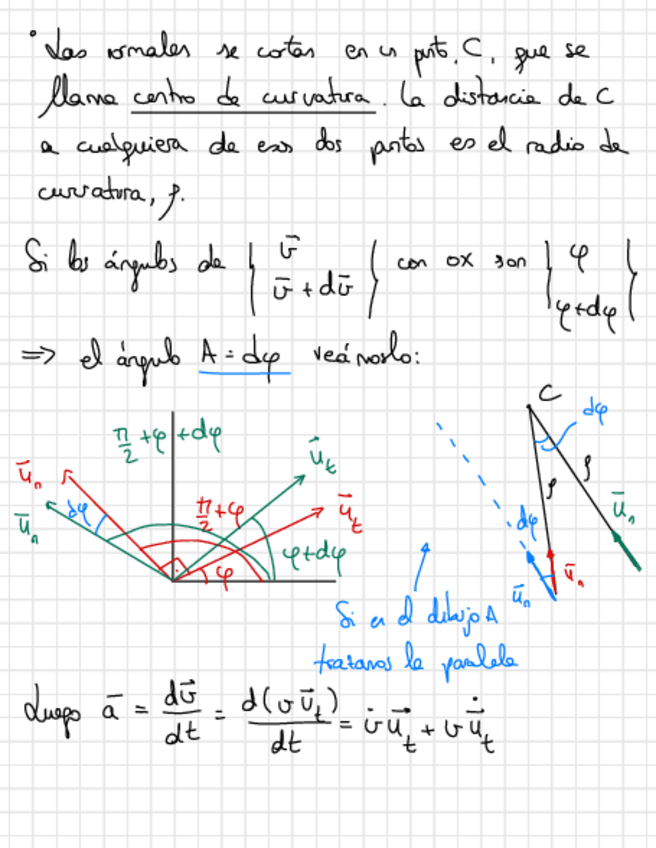 ° Las normales se cortan en un pnto, C, que se
llama centro de curvatura. La distancia de C
a cualquiera de esos dos puntos es el radio de
curvatura, ρ.
Si los ángulos de { v̄ / v̄ + dv̄ } con ox son { φ / φ+dφ }
⇒ el ángulo A = dφ veámoslo:
π/2 + φ + dφ
ū_n
ū_n
dφ
π/2 + φ
ū_t
ū_t
φ+dφ
φ
C
dφ
ρ
ρ
ū_n
dφ
ū_n
ū_n
Si en el dibujo A
trazamos la paralela
Luego ā = dv̄/dt = d(v ū_t)/dt = v̇ u⃗_t + v u̇⃗_t